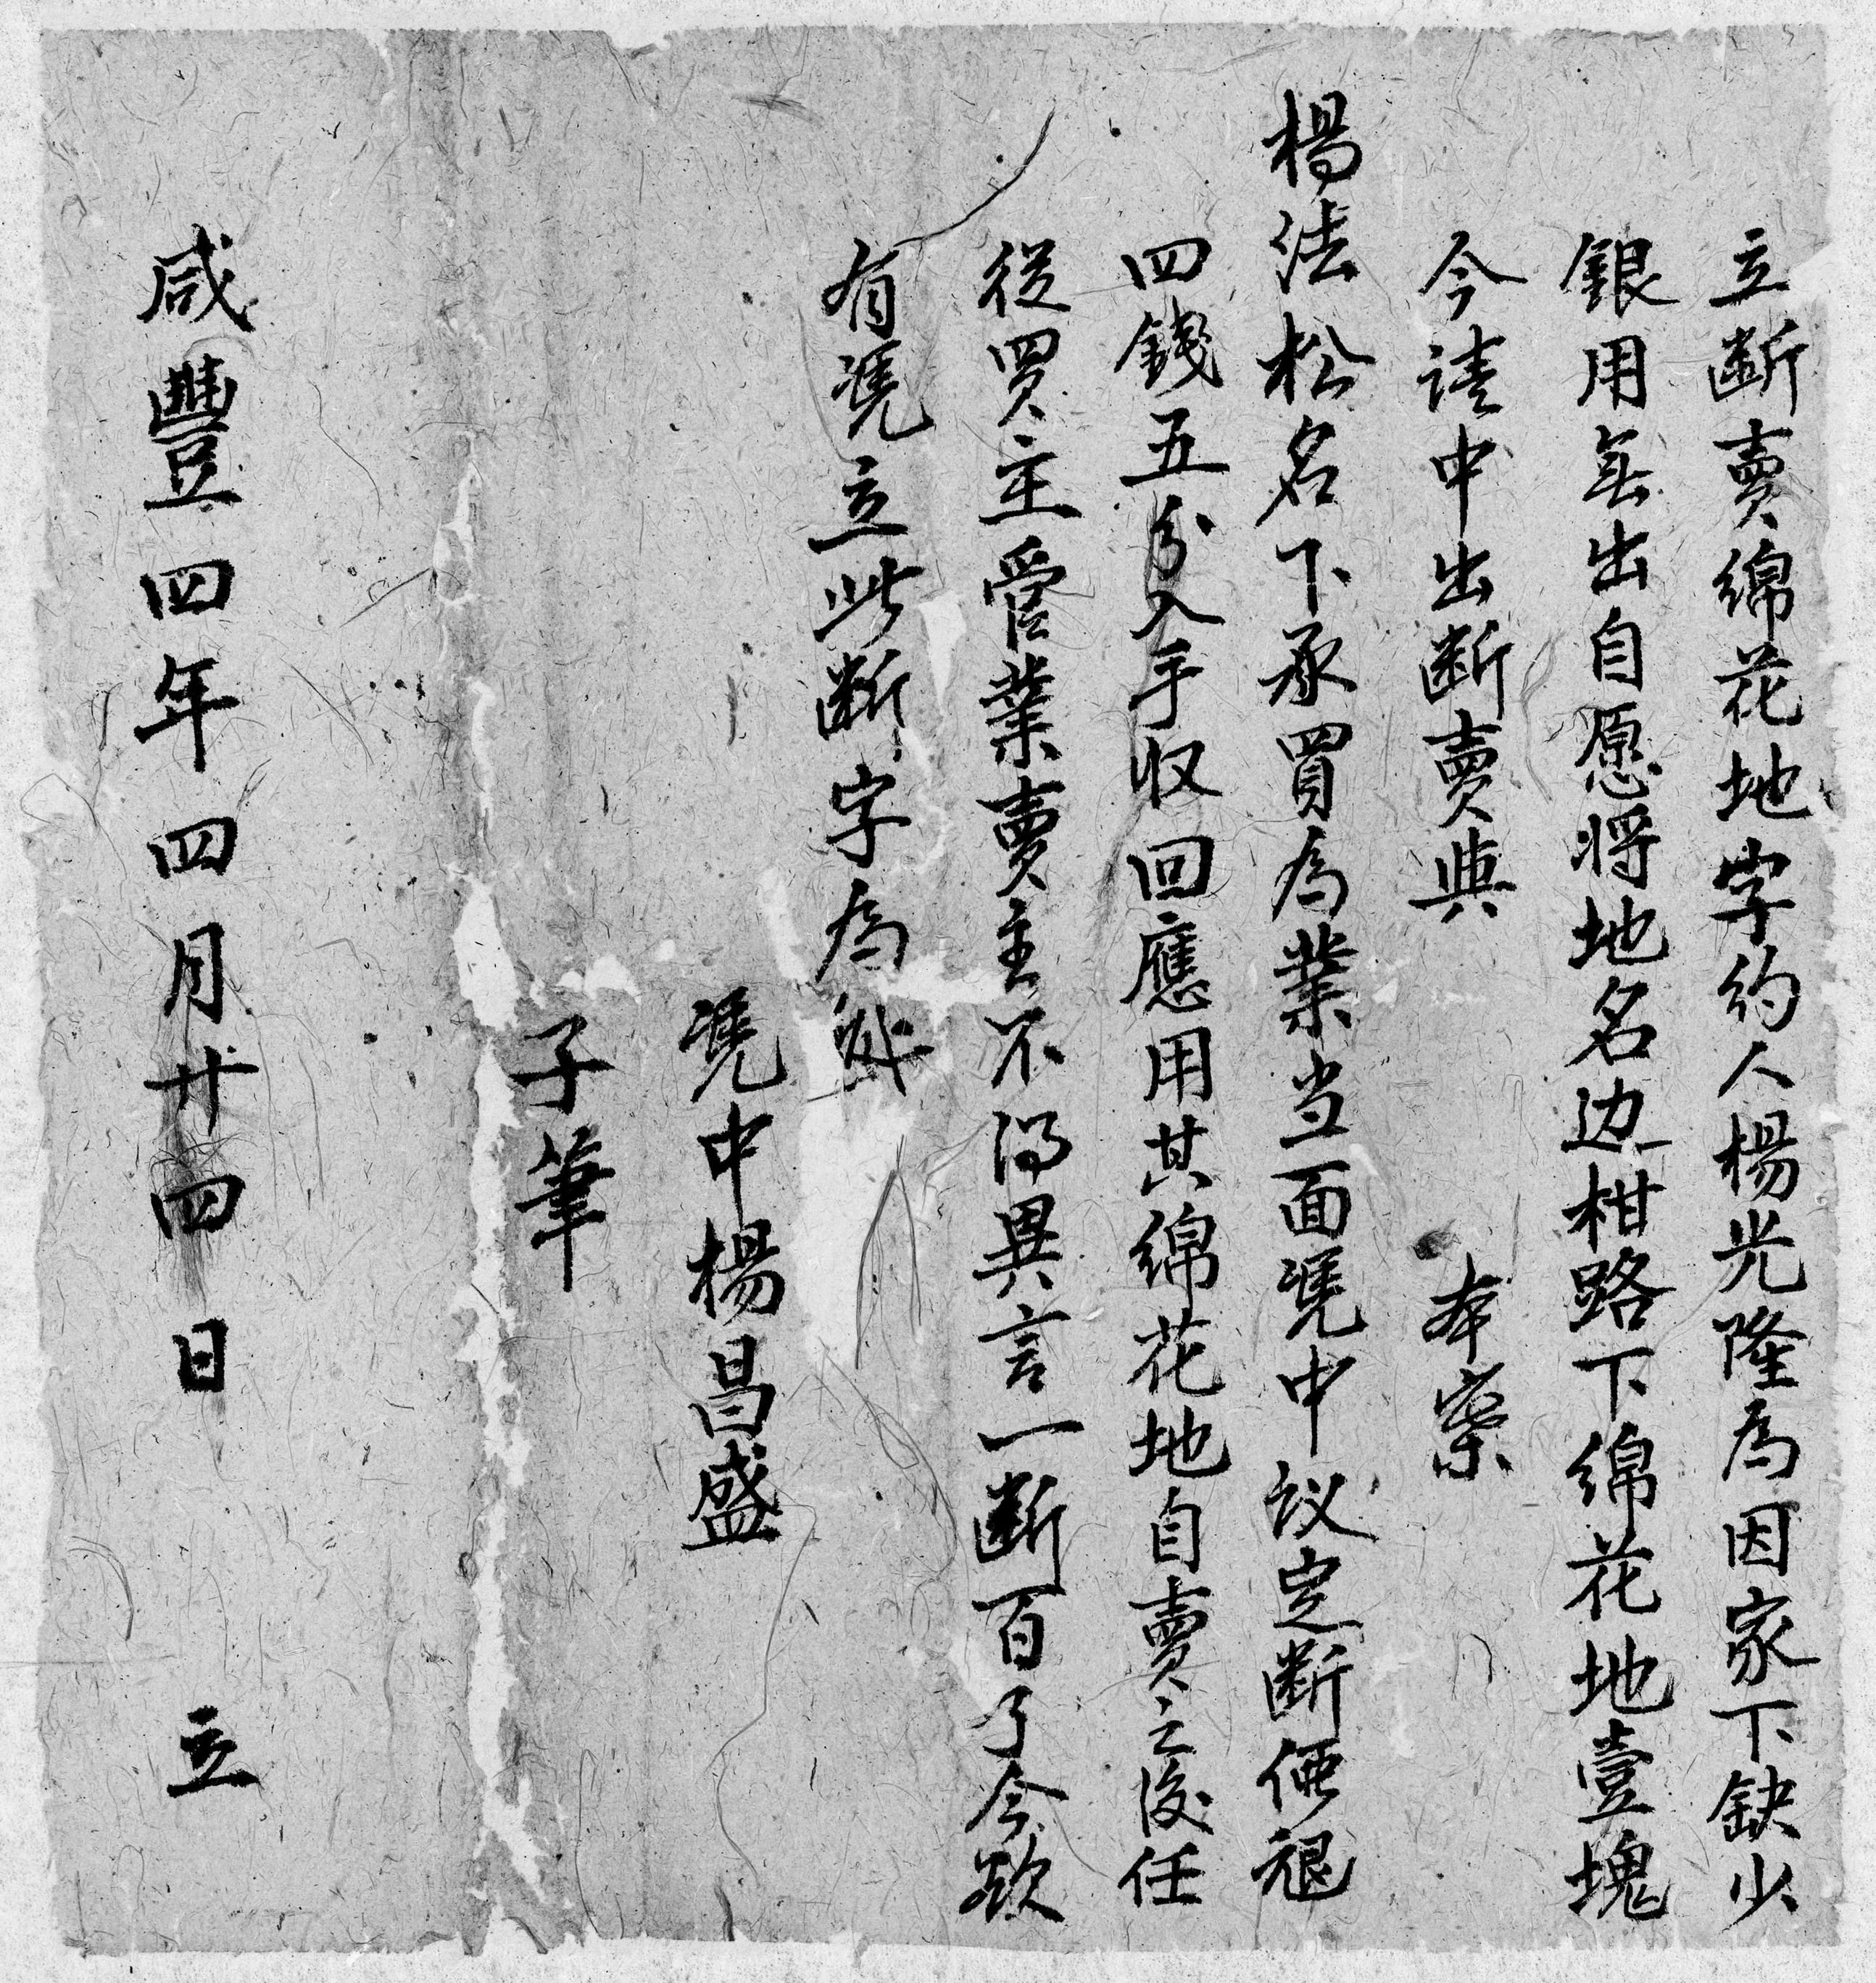 立断賣綿花地字約人楊光隆為因家下缺少
銀用無出自愿将地名边柑路下綿花地壹塊
今請中出断賣與 本寨
楊法松名下承買為業当面凭中议定断價銀
四錢五分入手収回應用其綿花地自賣之後任
從買主管業賣主不得異言一断百了今欲
有凭立此断字為
凭中楊昌盛
子筆
咸豐四年四月廿四日 立